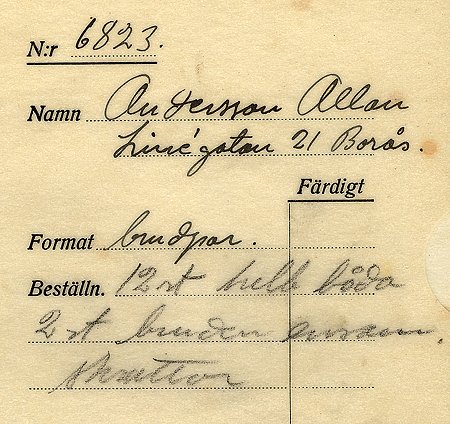 N:r 6823.
Namn Andersson Allan
Linnégatan 21 Borås.
Färdigt
Format brudpar.
Beställn. 12 st helb båda
2 st bruden ensam.